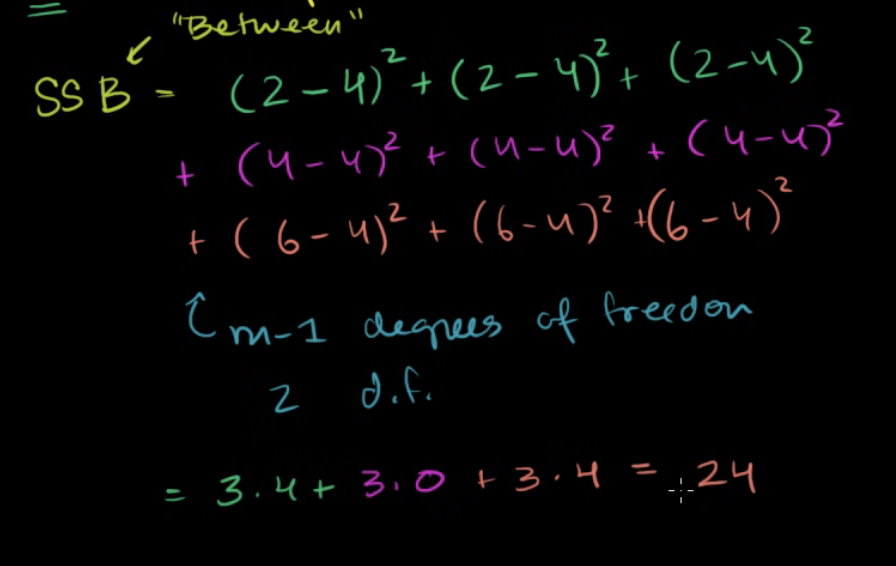 "Between"
SSB = (2-4)² + (2-4)² + (2-4)²
+ (4-4)² + (4-4)² + (4-4)²
+ (6-4)² + (6-4)² + (6-4)²
m-1 degrees of freedon
2 d.f.
= 3·4 + 3·0 + 3·4 = 24